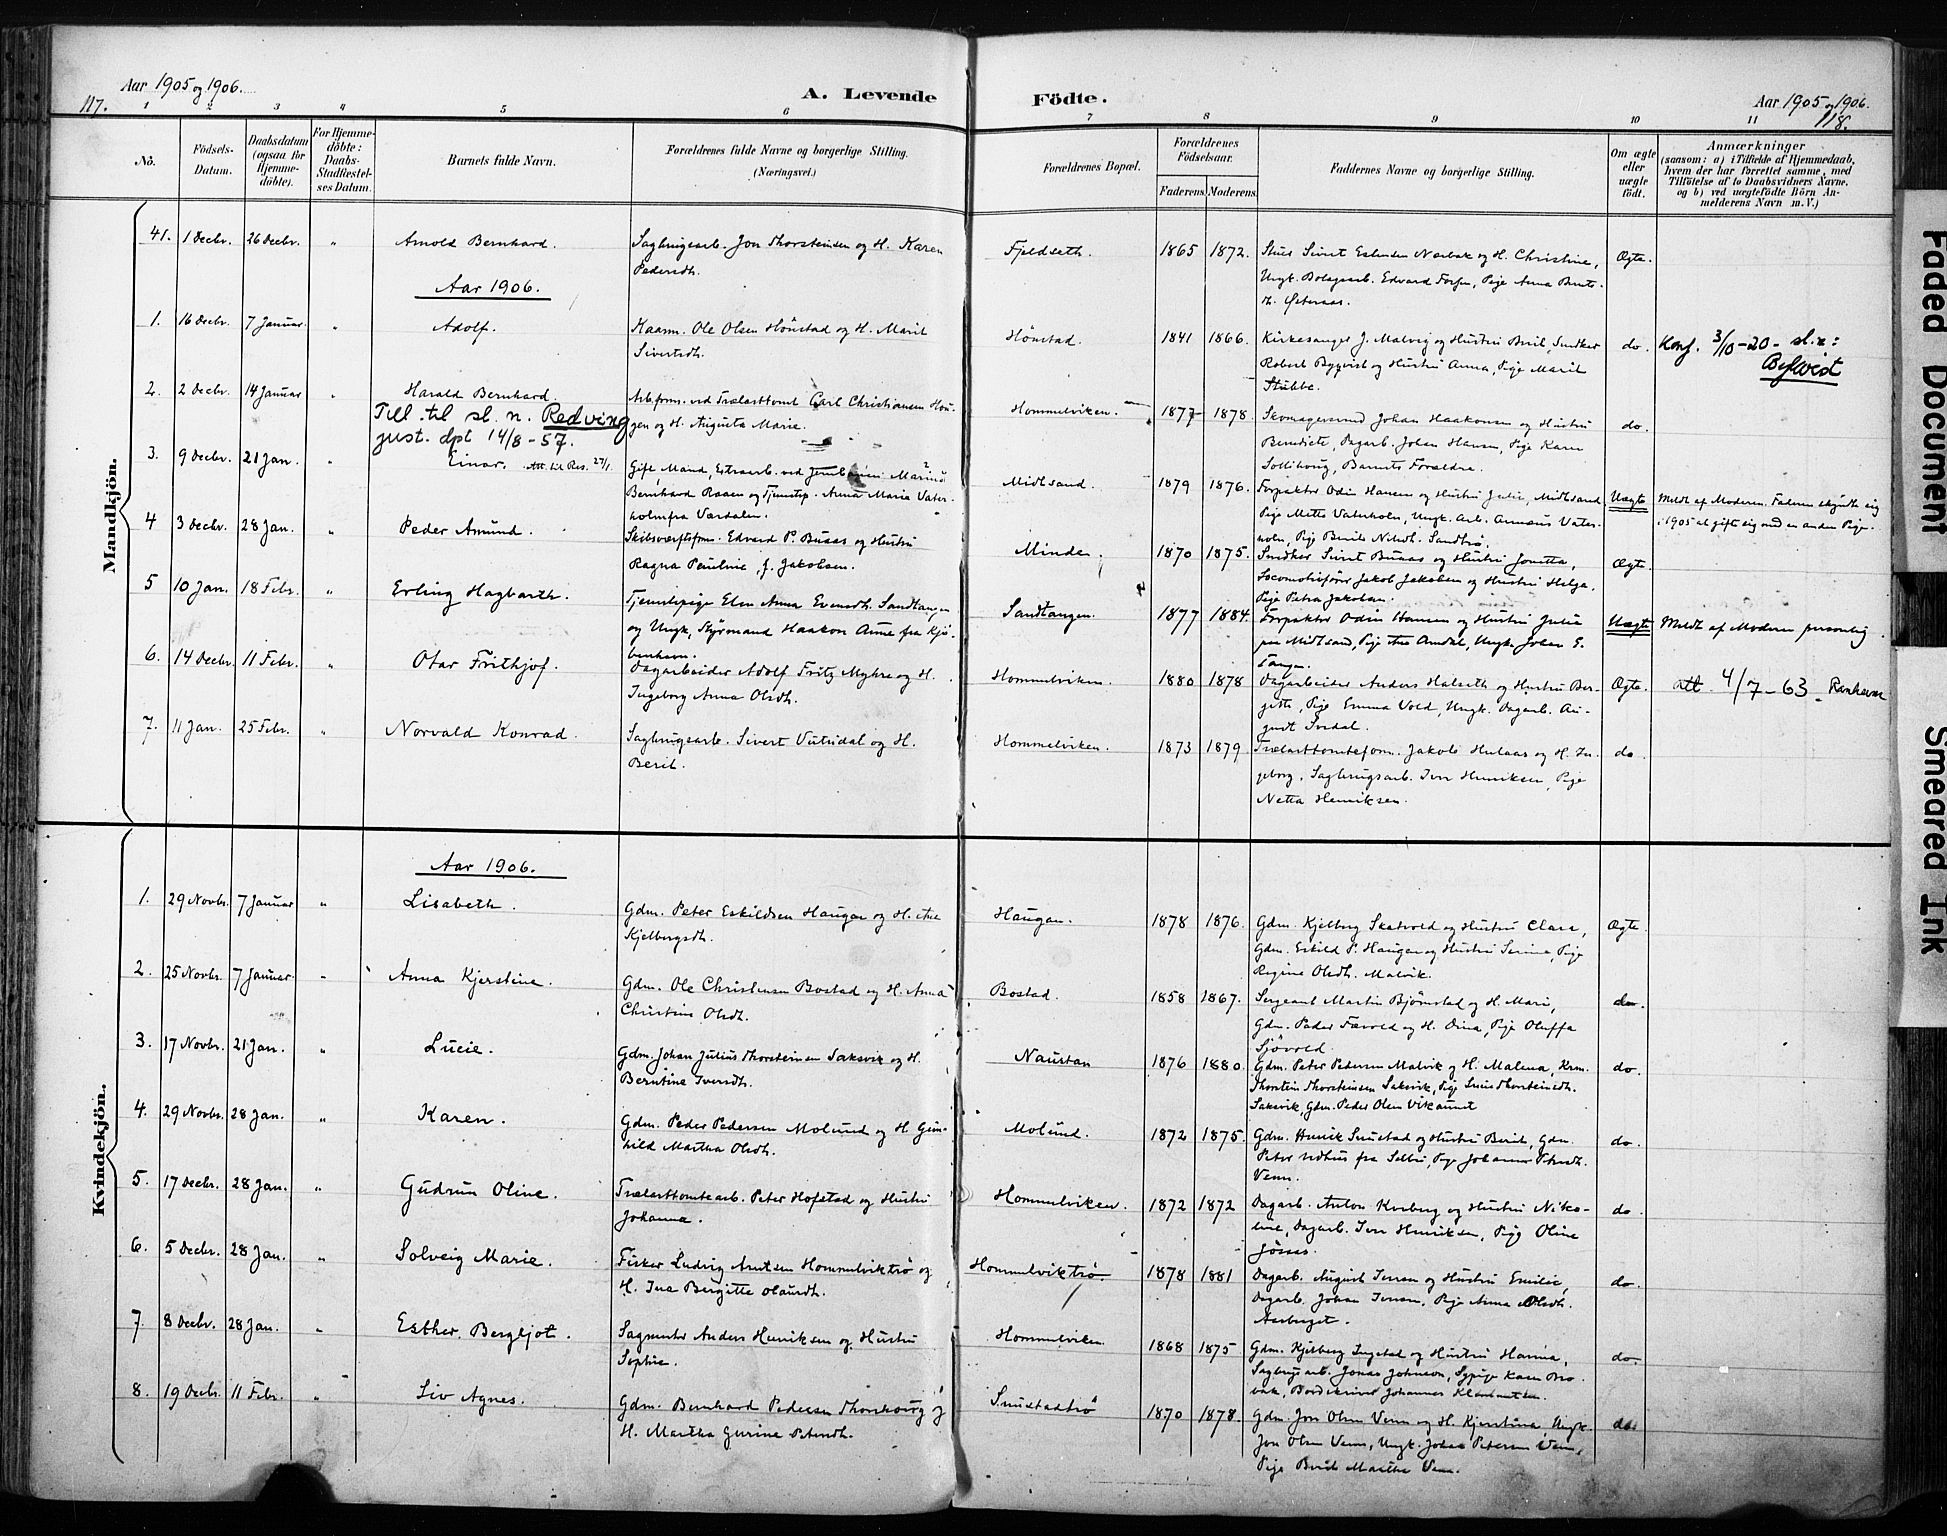 117.
Aar 1905 og 1906.
A. Levende
Födte.
Aar 1905 og 1906.
118.
1 2 3 4 5 6 7 8 9 10 11
No.
Födsels-Datum.
Daabsdatum (ogsaa for Hjemme-döbte).
For Hjemme-döbte: Daabs-Stadfæstel-ses Datum.
Barnets fulde Navn.
Forældrenes fulde Navne og borgerlige Stilling.
(Næringsvei.)
Forældrenes Bopæl.
Forældrenes Födselsaar.
Faderens. Moderens.
Faddernes Navne og borgerlige Stilling.
Om ægte eller uægte födt.
Anmærkninger
(saasom: a) i Tilfælde af Hjemmedaab, hvem der har forrettet samme, med Tilföielse af to Daabsvidners Navne, og b) ved uægtefödte Börn An-melderens Navn m. V.)
Mandkjön.
41. 1 Decbr. 26 Decbr. " Arnold Bernhard. Sagbrugsarb. Jon Thorsteinsen og H. Karen
Pedersdt.
Fjeldseth. 1865 1872. Sivert Estensen og H. Christine,
Ungk. Edvard Pige Anna
Østeraas.
Ægte.
Aar 1906.
1. 16 Decbr. 7 Januar " Adolf. Kaarm. Ole Olsen Hönstad og H. Marit
Sivertsdt.
Hönstad. 1841 1866. Kirkesanger J. Malvig og Hustru Beril, Snedker
Robert Bygqvist og Hustru Anna, Pige Marit
Stubbe.
do. Konf. 3/10-20- sl.n:
Bykvist
2. 2 Decbr. 14 Januar " Harald Bernhard.
Till. til sl. n. Redving
just. dpt 14/8-57.
Arb.form. ved Trælasttomt Carl Christiansen Hau-
gen og H. Augusta Marie.
Hommelviken. 1877 1878. Skomagersvend Johan Haakonsen og Hustru
Benedicte, Dagarb. Johan Hansen, Pige Karen
Barnets Forældre.
do.
3. 9 Decbr. 21 Jan. " Einar. Att. til Res. 27/1. Gift Mand, Extraarb. ved Jernbanen
Bernhard Raaen og Tjenstep. Anna Maria Vater-
holm fra Værdalen.
Midtsand. 1879 1876. Forpakter Odin Hansen og Hustru Julie, Midtsand,
Pige Mette Vaterholm, Ungk. Arb. Vater-
holm, Pige
Uægte Meldt af Moderen. Faderen skyndte sig
i 1905 at gifte sig med en anden Pige.
4 3 Decbr. 28 Jan. " Peder Amund. Skibsværftsform. Edvard P. Buaas og Hustru
Ragna Pauline, f. Jakobsen.
Minde. 1870 1875. Snedker Sivert Buaas og Hustru Jonetta,
Locomotivförer Jakob Jakobsen og Hustru Helga,
Pige Petra Jakobsen.
Ægte.
5 10 Jan. 18 Febr. " Erling Hagbarth. Tjenstepige Elen Anna Evensdt. Sandtangen
og Ungk. Styrmand Haakon fra Kjö-
benhavn.
Sandtangen. 1877 1884. Forpakter Odin Hansen og Hustru Julie
paa Midtsand, Pige Ungk. Johan E.
Tangen.
Uægte Meldt af Moderen personlig.
6. 14 Decbr. 11 Febr. " Otar Frithjof. Dagarbeider Adolf Fritz Myhre og H.
Ingeborg Anna Olsdt.
Hommelviken. 1880 1878 Dagarbeider Anders Halseth og Hustru Ber-
gitte, Pige Emma Vold, Ungk. Dagarb. Au-
gust
Ægte. Att. 4/7-63 - Ranheim
7. 11 Jan. 25 Febr. " Norvald Konrad. Sagbrugsarb. Sivert og H.
Berit.
Hommelviken. 1873 1879. Trælasttomteform. Jakob og H. In-
geborg, Sagbrugsarb. Iver Henriksen, Pige
Netta Henriksen.
do.
Kvindekjön.
Aar 1906.
1. 29 Novbr. 7 Januar " Lisabeth. Gdm. Peter Eskildsen Haugan og H. Ane
Kjelbergsdt.
Haugan. 1878 1876. Gdm. Kjelberg Skatvold og Hustru Clara,
Gdm. Eskild P. Haugen og Hustru Serine, Pige
Regine Olsdt. Malvik.
Ægte
2. 25 Novbr. 7 Januar " Anna Kjerstine. Gdm. Ole Christensen Bostad og H. Anna
Christine Olsdt.
Bostad. 1858 1867. Sergeant Martin Björnstad og H. Mari,
Gdm. Peder Færvold og H. Dina, Pige Oluffa
Sjövold.
do.
3. 17 Novbr. 21 Jan. " Lucie. Gdm. Johan Julius Thorsteinsen Saksvik og H.
Berntine Iversdt.
Naustan 1876 1880. Gdm. Peter Pedersen Malvik og H. Malena, Krm.
Thorstein Thorsteinsen Saksvik, Pige Thorsteinsdt.
Saksvik, Gdm. Peder Olsen Vikaunet
do.
4. 29 Novbr. 28 Jan. " Karen. Gdm. Peder Pedersen Molund og H. Gun-
hild Martha Olsdt.
Molund. 1872 1875. Gdm. Henrik Snustad og Hustru Berit, Gdm.
Peter fra Selbu, Pige Johanna
Venn.
do.
5. 17 Decbr. 28 Jan. " Gudrun Oline. Trælasttomtearb. Peter Hofstad og Hustru
Johanna.
Hommelviken. 1872 1872 Dagarb. Anton Korberg og Hustru Niko-
line, Dagarb. Iver Henriksen, Pige Oline
Jösaas.
do.
6. 5 Decbr. 28 Jan. " Solveig Marie. Fisker Ludvig Arntsen Hommelviktrö og
H. Ina Bergitte Olausdt.
Hommelviktrö. 1878 1881 Dagarb. August Jensen og Hustru Emilie,
Dagarb. Johan Jensen, Pige Anna Olsdt.
Aasbuget.
do.
7. 8 Decbr. 28 Jan. " Esther Bergljot. Sagmester Anders Henriksen og Hustru
Sophie.
Hommelviken 1868 1875 Gdm. Kjelberg Ingstad og Hustru Hanna,
Sagbrugsarb. Jonas Johnson, Sypige Karen Bro-
bak, Bordskriver Johannes
do.
8. 19 Decbr. 11 Febr. " Liv Agnes. Gdm. Bernhard Pedersen Thorshaug og
H. Martha Gurine Petersdt.
Snustadtrö 1870 1878. Gdm. Jon Olsen Venn og H. Kjerstina, Ungk.
Jon Olsen Venn, Ungk. Johan Petersen Venn,
Pige Berit Martha Venn.
do.
Faded Document
Smeared Ink